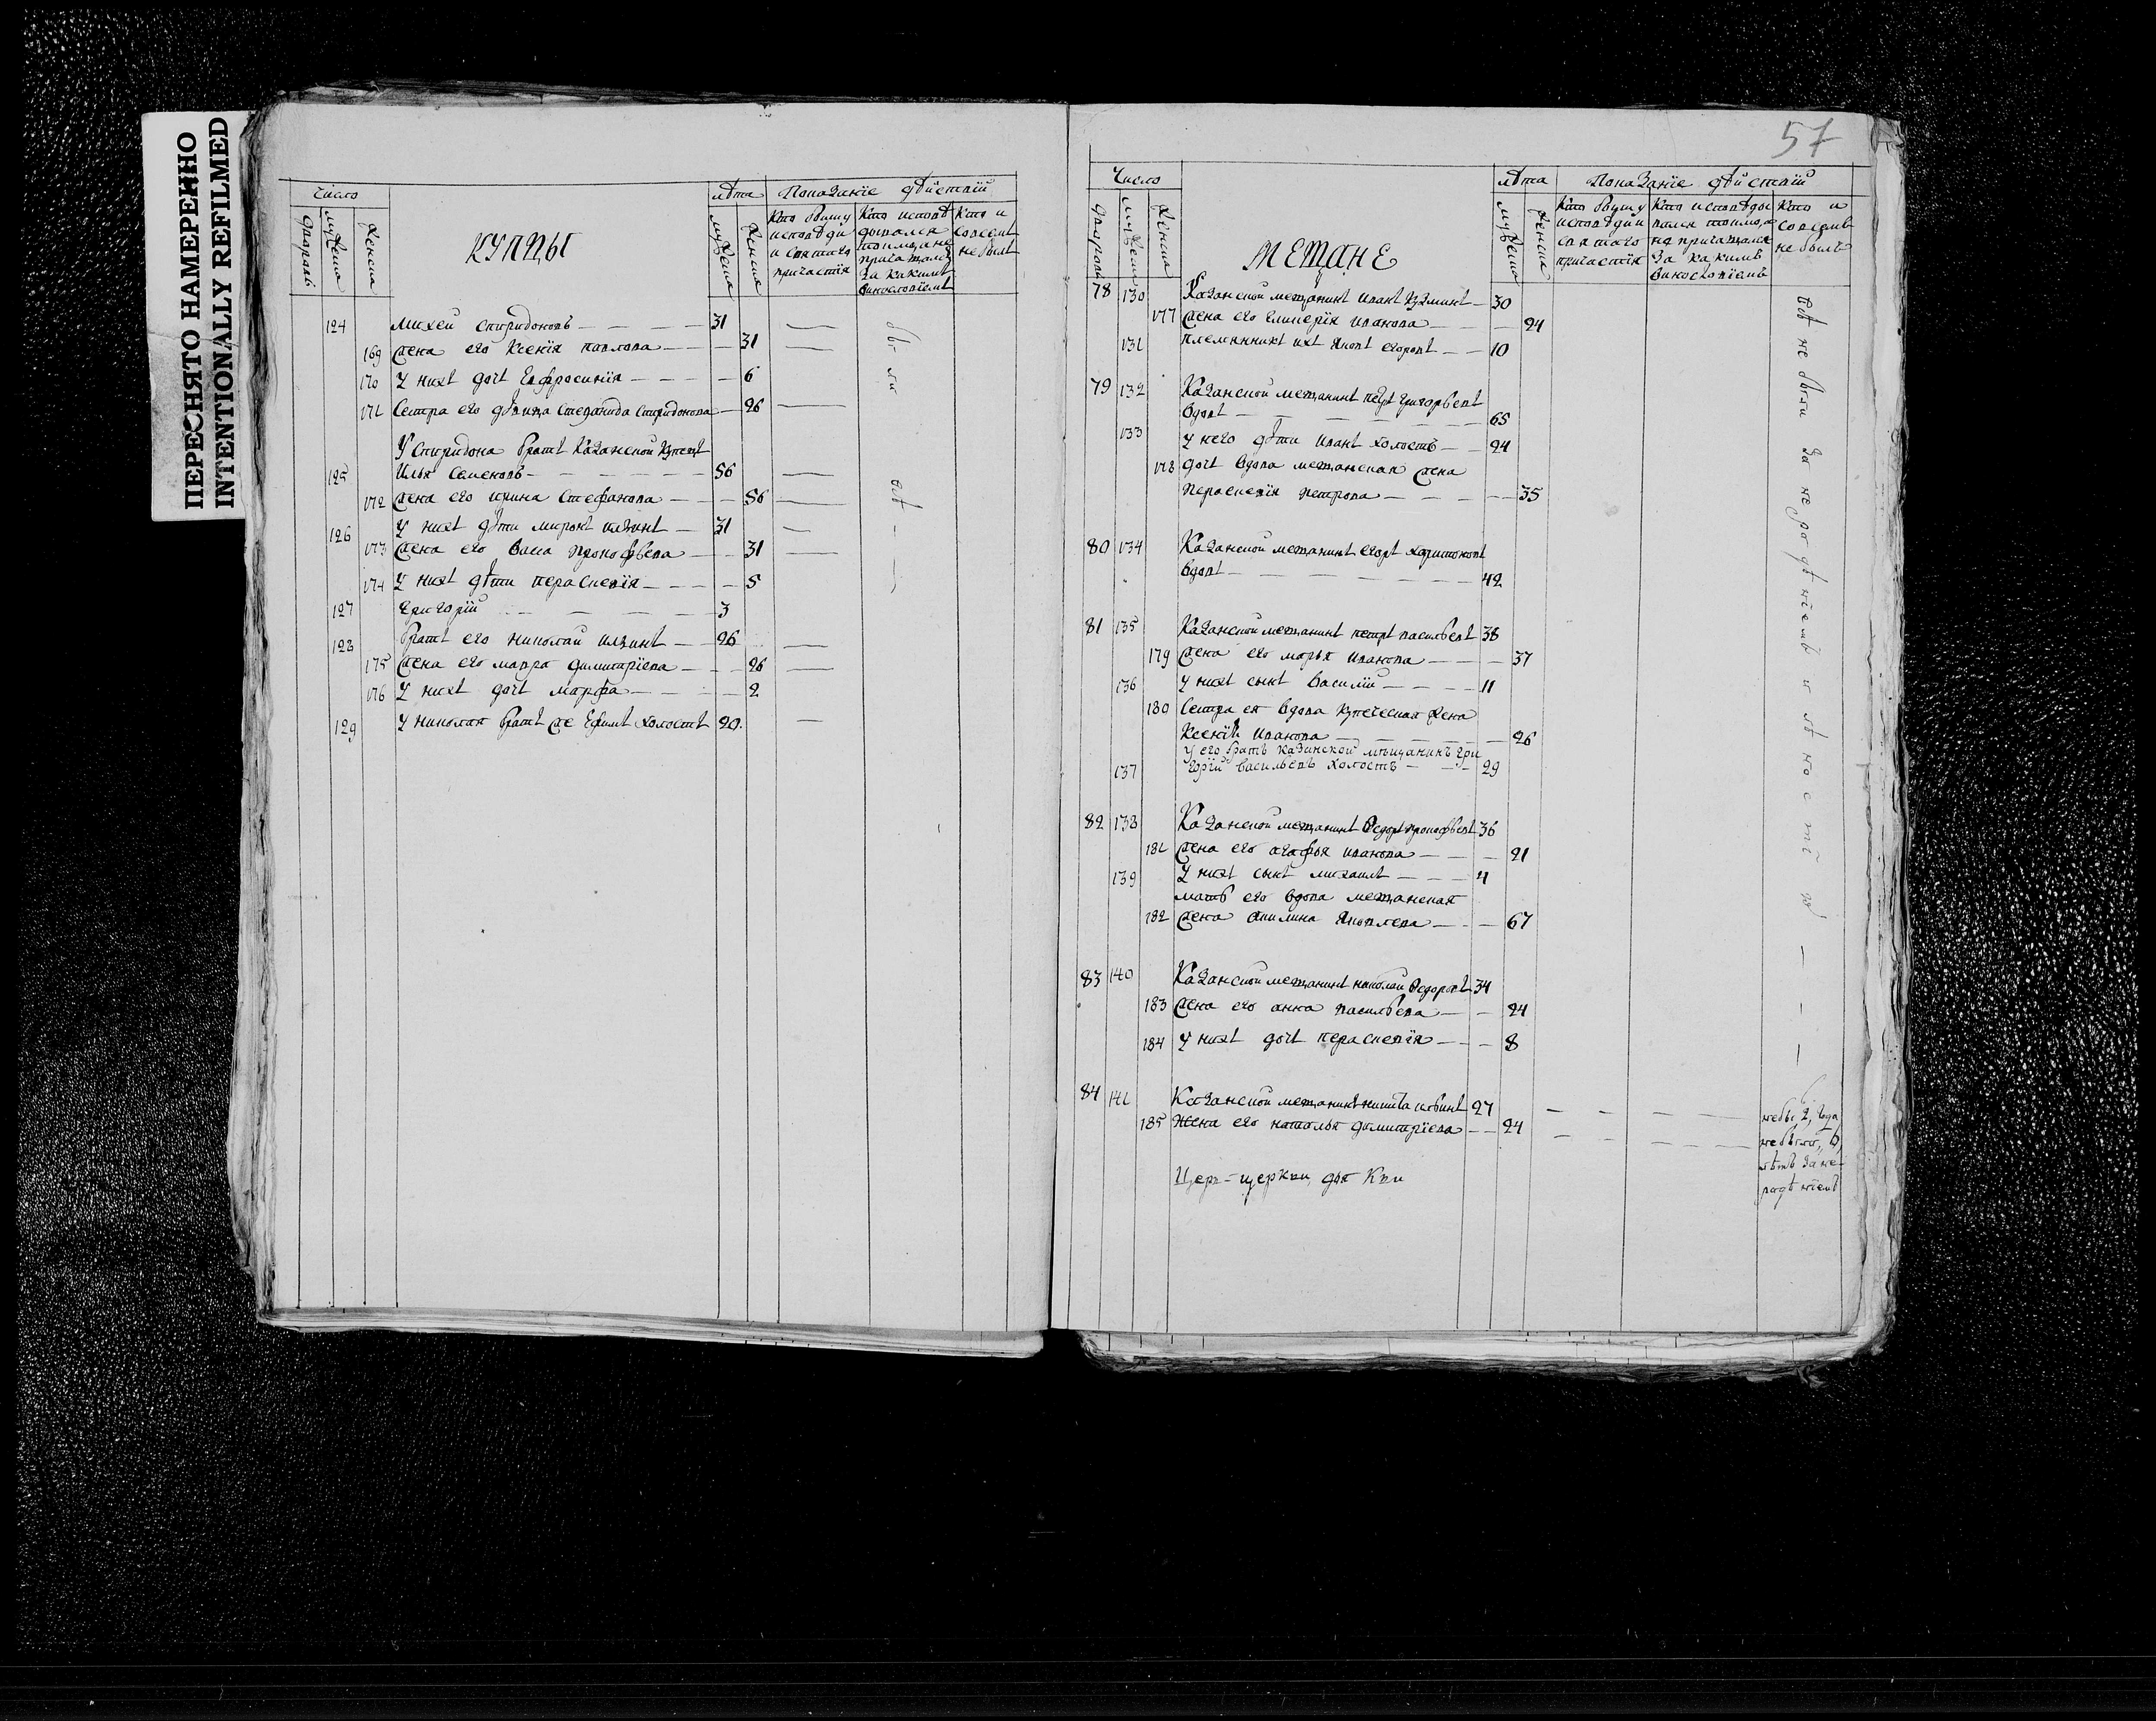 ПЕРЕСНЯТО НАМЕРЕННО
INTENTIONALLY REFILMED
Число
Лѣта
Показаніе дѣйствій
дворовъ
мужеска
женска
КУПЦЫ
мужеска
женска
Кто былъ у исповѣди и святаго причастія
Кто исповѣдывался токмо, а не причащался за какимъ винословіемъ
Кто и совсемъ не былъ
124 Михей Спиридоновъ 31
169 Жена его Ксенія Павлова 31
170 У нихъ дочь Евфросинія 6
171 Сестра его дѣвица Степанида Спиридонова 26
У Спиридона братъ Казанской купецъ
125 Илья Семеновъ 56
172 Жена его Ирина Стефанова 56
126 У нихъ дѣти Миронъ Ильинъ 31
173 Жена его Васса Прокофьева 31
174 У нихъ дѣти Параскевія 5
127 Григорій 3
128 Братъ его Николай Ильинъ 26
175 Жена его Мавра Димитріева 26
176 У нихъ дочь Марфа 2
129 У Николая братъ же Ефимъ холостъ 20
были всѣ
57
Число
Лѣта
Показаніе дѣйствій
дворовъ
мужеска
женска
МЕЩАНЕ
мужеска
женска
Кто былъ у исповѣди и святаго причастія
Кто исповѣдывался токмо, а не причащался за какимъ винословіемъ
Кто и совсемъ не былъ
78 130 Казанской мещанинъ Иванъ Кузминъ 30
177 Жена его Гликерія Иванова 24
131 Племянникъ ихъ Яковъ Егоровъ 10
79 132 Казанской мещанинъ Петръ Григорьевъ
вдовъ 65
133 У него дѣти Иванъ холостъ 24
178 Дочь вдова мещанская жена
Параскевія Петрова 35
80 134 Казанской мещанинъ Егоръ Харитоновъ
вдовъ 42
81 135 Казанской мещанинъ Петръ Васильевъ 38
179 Жена его Марья Иванова 37
136 У нихъ сынъ Василій 11
180 Сестра ея вдова купеческая жена
Ксенія Иванова 26
У его братъ Казанской мѣщанинъ Гри
137 горій Васильевъ холостъ 29
82 138 Казанской мещанинъ Ѳедоръ Прокофьевъ 36
181 Жена его Агафья Иванова 21
139 У нихъ сынъ Михаилъ 4
Мать его вдова мещанская
182 жена Акилина Яковлева 67
83 140 Казанской мещанинъ Николай Ѳедоровъ 34
183 Жена его Анна Васильева 24
184 У нихъ дочь Параскевія 8
84 141 Казанской мещанинъ Никита Ильинъ 27
185 Жена его Наталья Димитріева 24
всѣ не были за нерадѣніемъ и лѣностію
небы, 2, года,
небыла, 6,
лѣтъ за не-
радѣніемъ